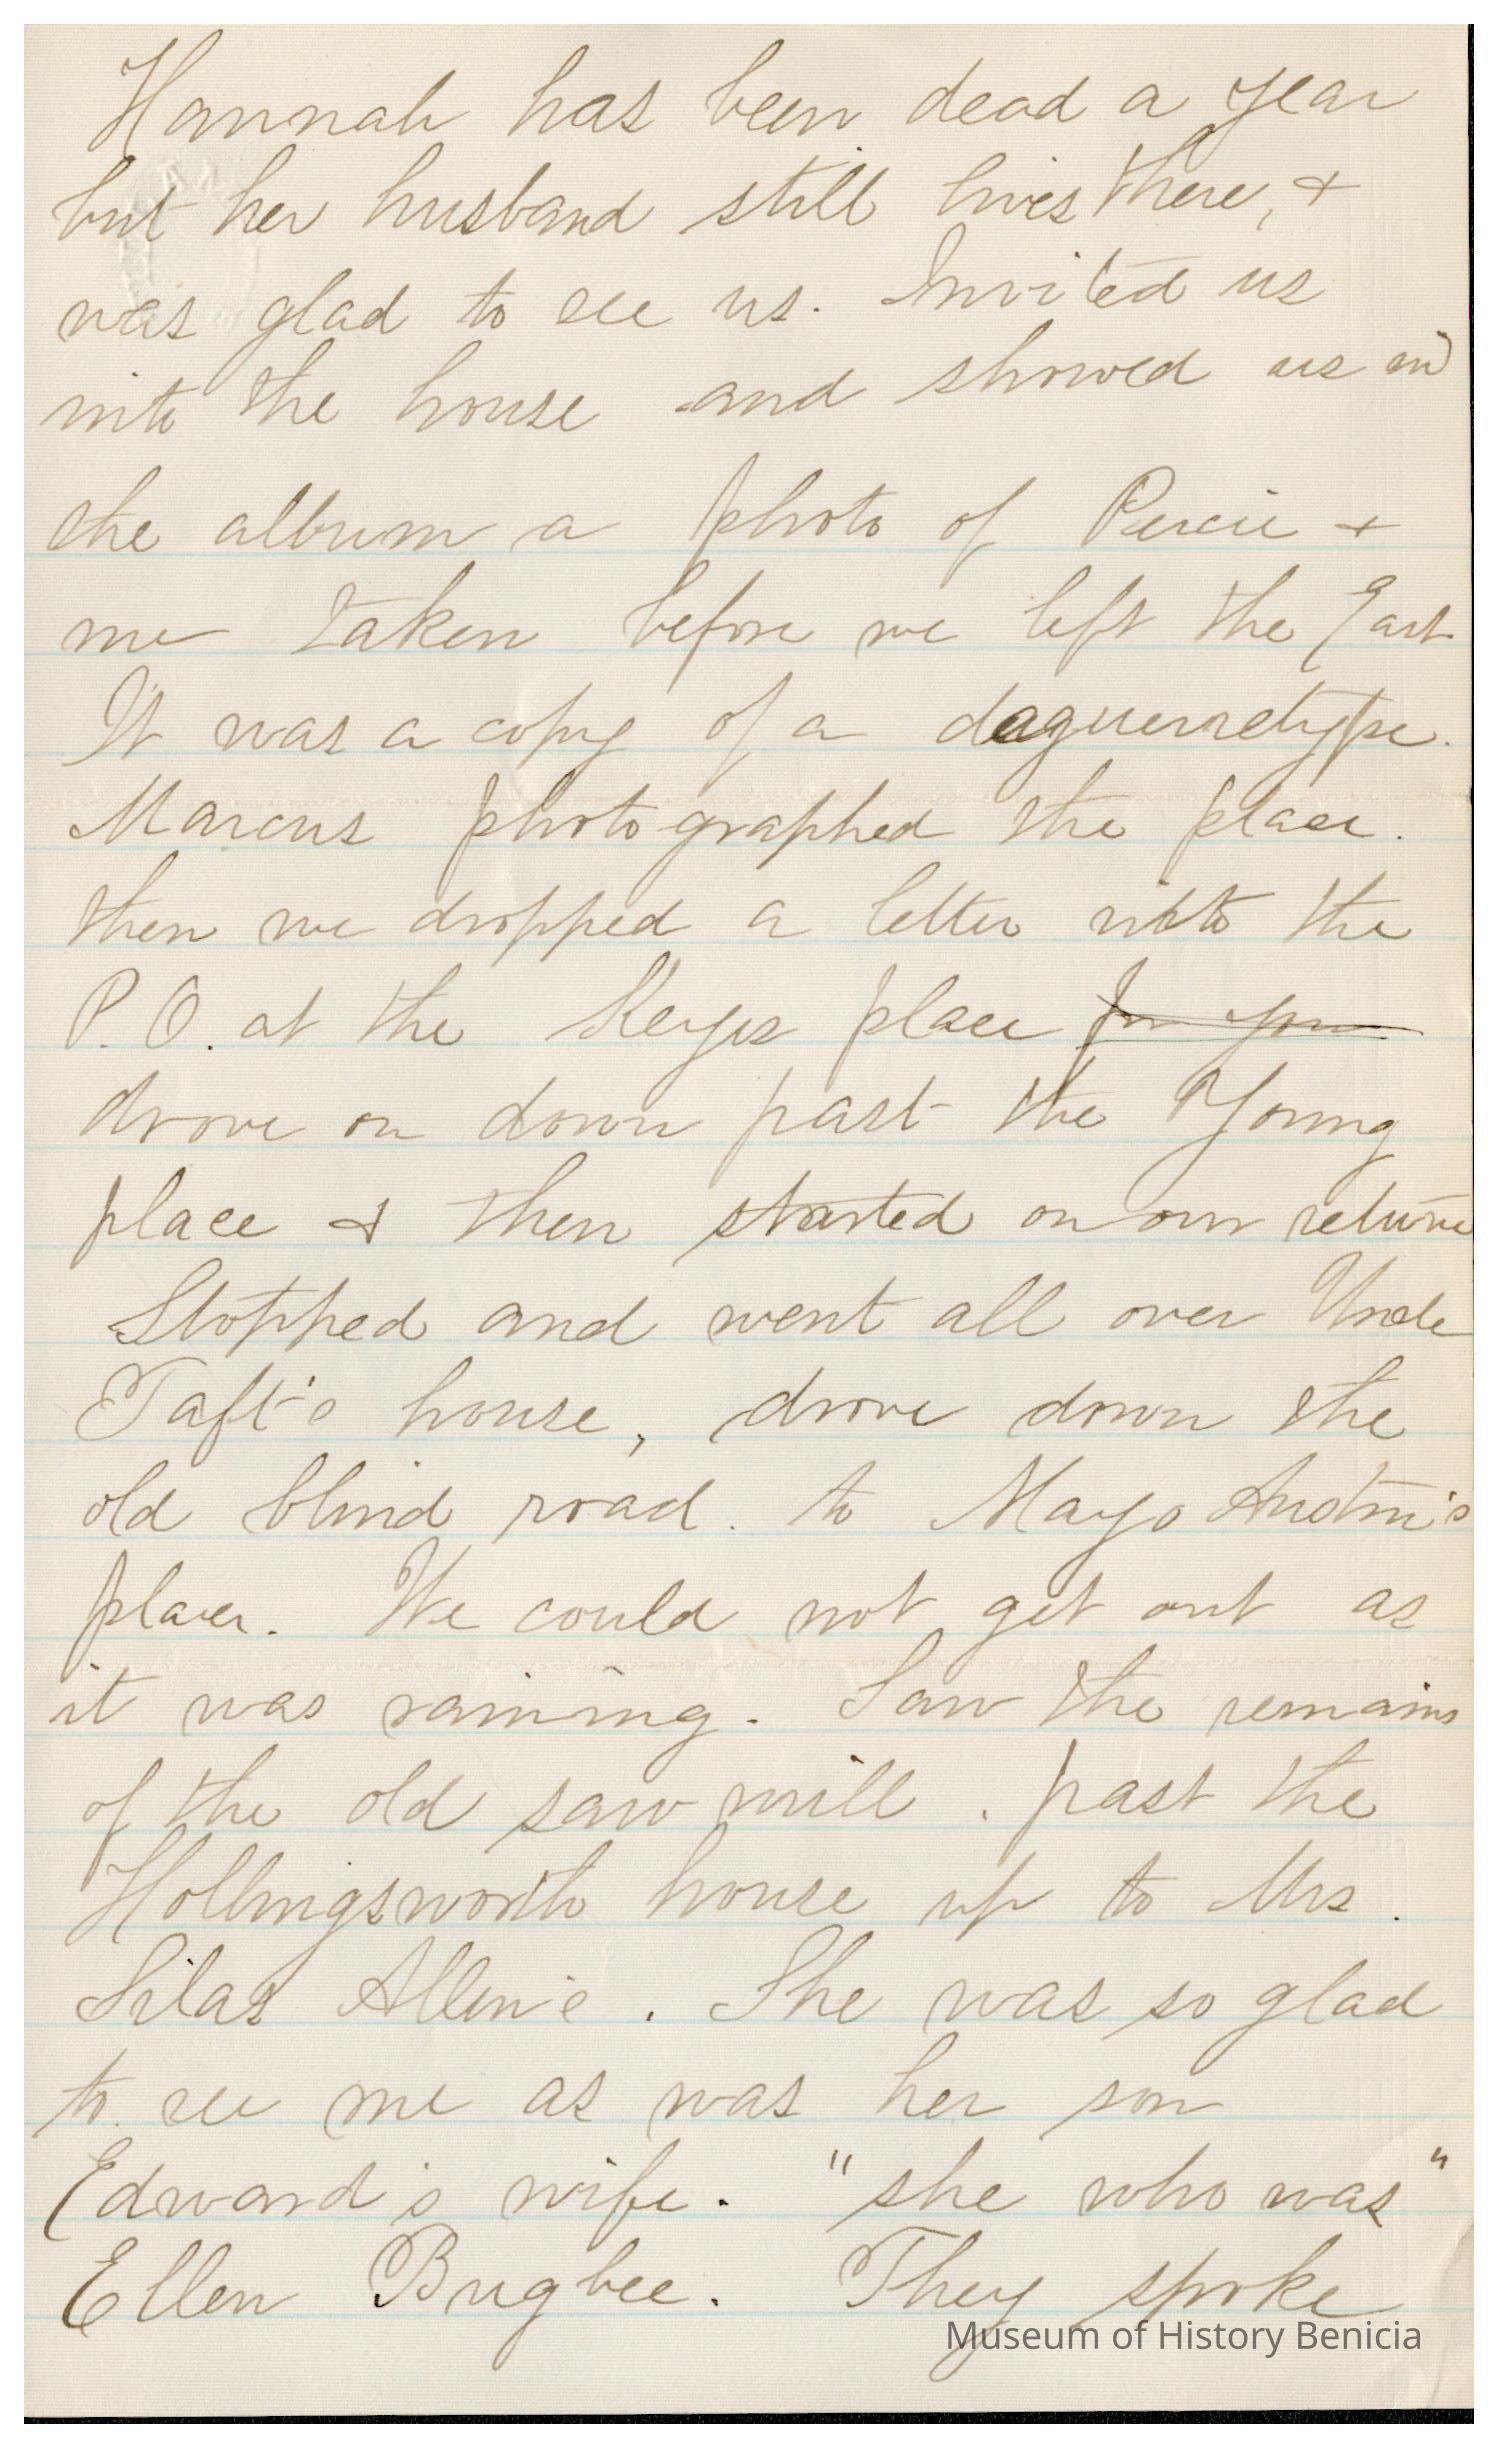 Hannah has been dead a year
but her husband still lives there, +
was glad to see us. Invited us
into the house and showed us in
the album a photo of Percie +
me taken before we left the East.
It was a copy of a daguerretype.
Marcus photographed the place.
then we dropped a letter into the
P.O. at the Keyes place for you
drove on down past the Young
place & then started on our return
Stopped and went all over Uncle
Taft's house, drove down the
old blind road. to Mayo Austin's
place. We could not get out as
it was raining. Saw the remains
of the old saw mill. past the
Hollingsworth house up to Mrs.
Silas Allen's. She was so glad
to see me as was her son
Edward's wife. "she who was"
Ellen Bugbee. They spoke
Museum of History Benicia